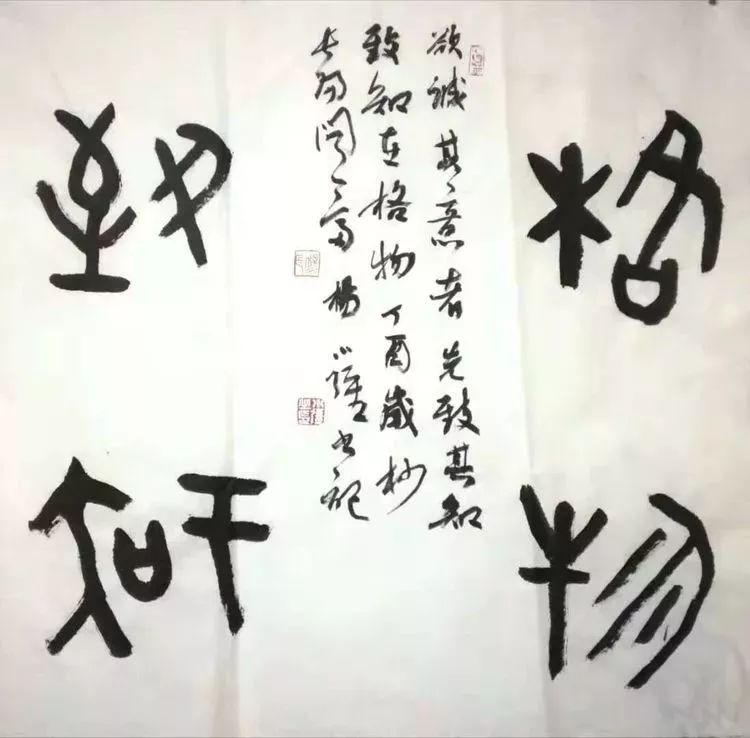 格物
欲誠其意者先致其知
致知在格物丁酉歲杪
楊 書記
致知